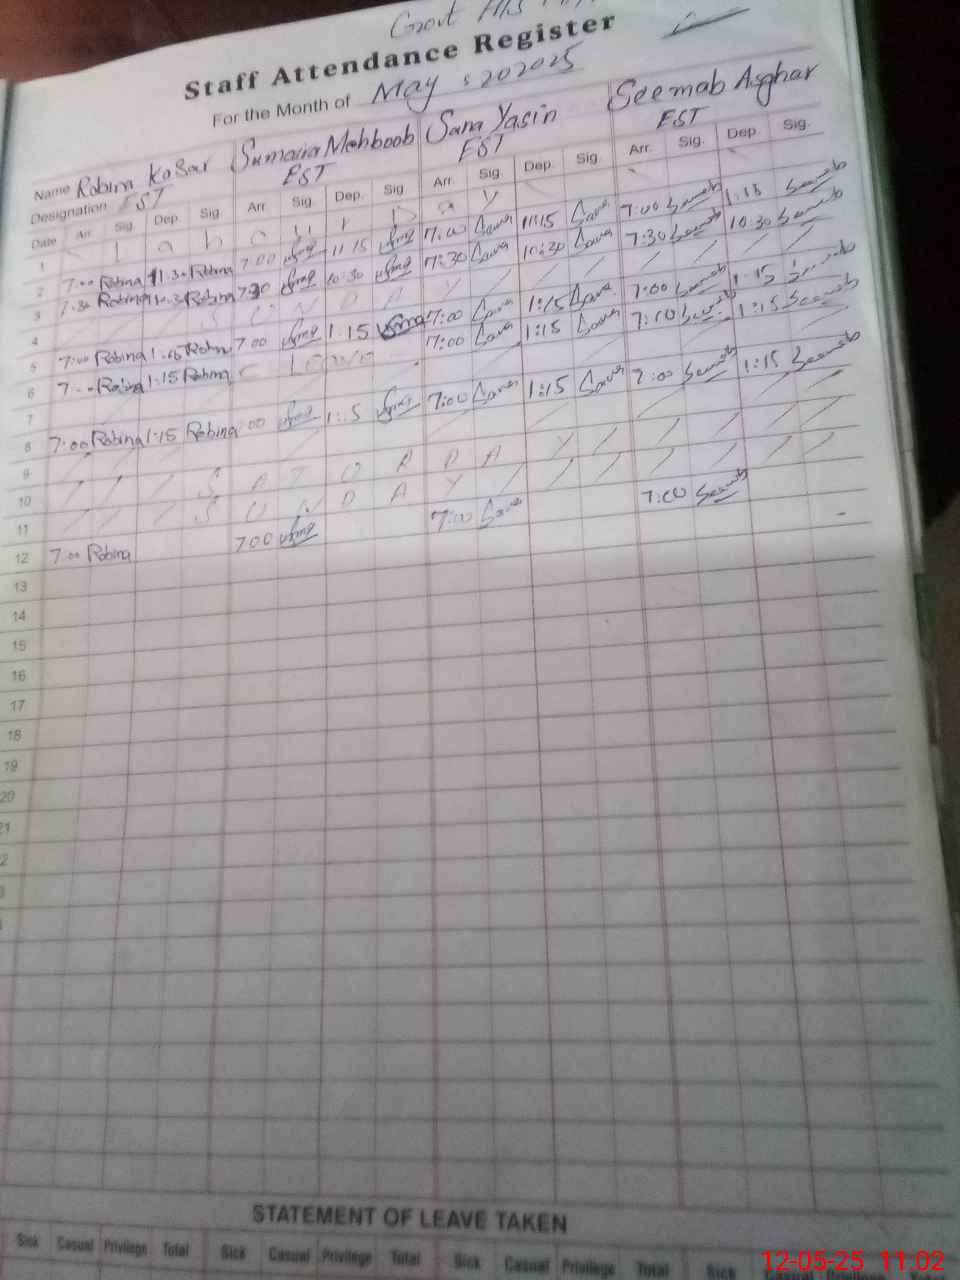 Govt
Staff Attendance Register
For the Month of May, 202025
Name Robina Kosar Sumaira Mehboob Sana Yasin Seemab Asghar
Designation EST EST EST EST
Date Arr. Sig. Dep. Sig. Arr. Sig. Dep. Sig. Arr. Sig. Dep. Sig. Arr. Sig. Dep. Sig.
1 L a b o u r D a y
2 7:00 Robina 11:30 Robina 7:00 11:15 7:00 Sana 11:15 Sana 7:00 Seemab 1:15 Seemab
3 7:30 Robina Robina 7:30 10:30 7:30 Sana 10:30 Sana 7:30 Seemab 10:30 Seemab
4 S U N D A Y
5 7:00 Robina 1:15 Robina 7:00 1:15 7:00 Sana 1:15 Sana 7:00 Seemab 1:15 Seemab
6 7:00 Robina 1:15 Robina C Leave 7:00 Sana 1:15 Sana 7:00 Seemab 1:15 Seemab
7
8 7:00 Robina 1:15 Robina 7:00 1:15 7:00 Sana 1:15 Sana 7:00 Seemab 1:15 Seemab
9
10 S A T U R D A Y
11 S U N D A Y
12 7:00 Robina 7:00 7:00 Sana 7:00 Seemab
13
14
15
16
17
18
19
20
21
STATEMENT OF LEAVE TAKEN
Sick Casual Privilege Total Sick Casual Privilege Total Sick Casual Privilege Total Sick
12-05-25 11:02